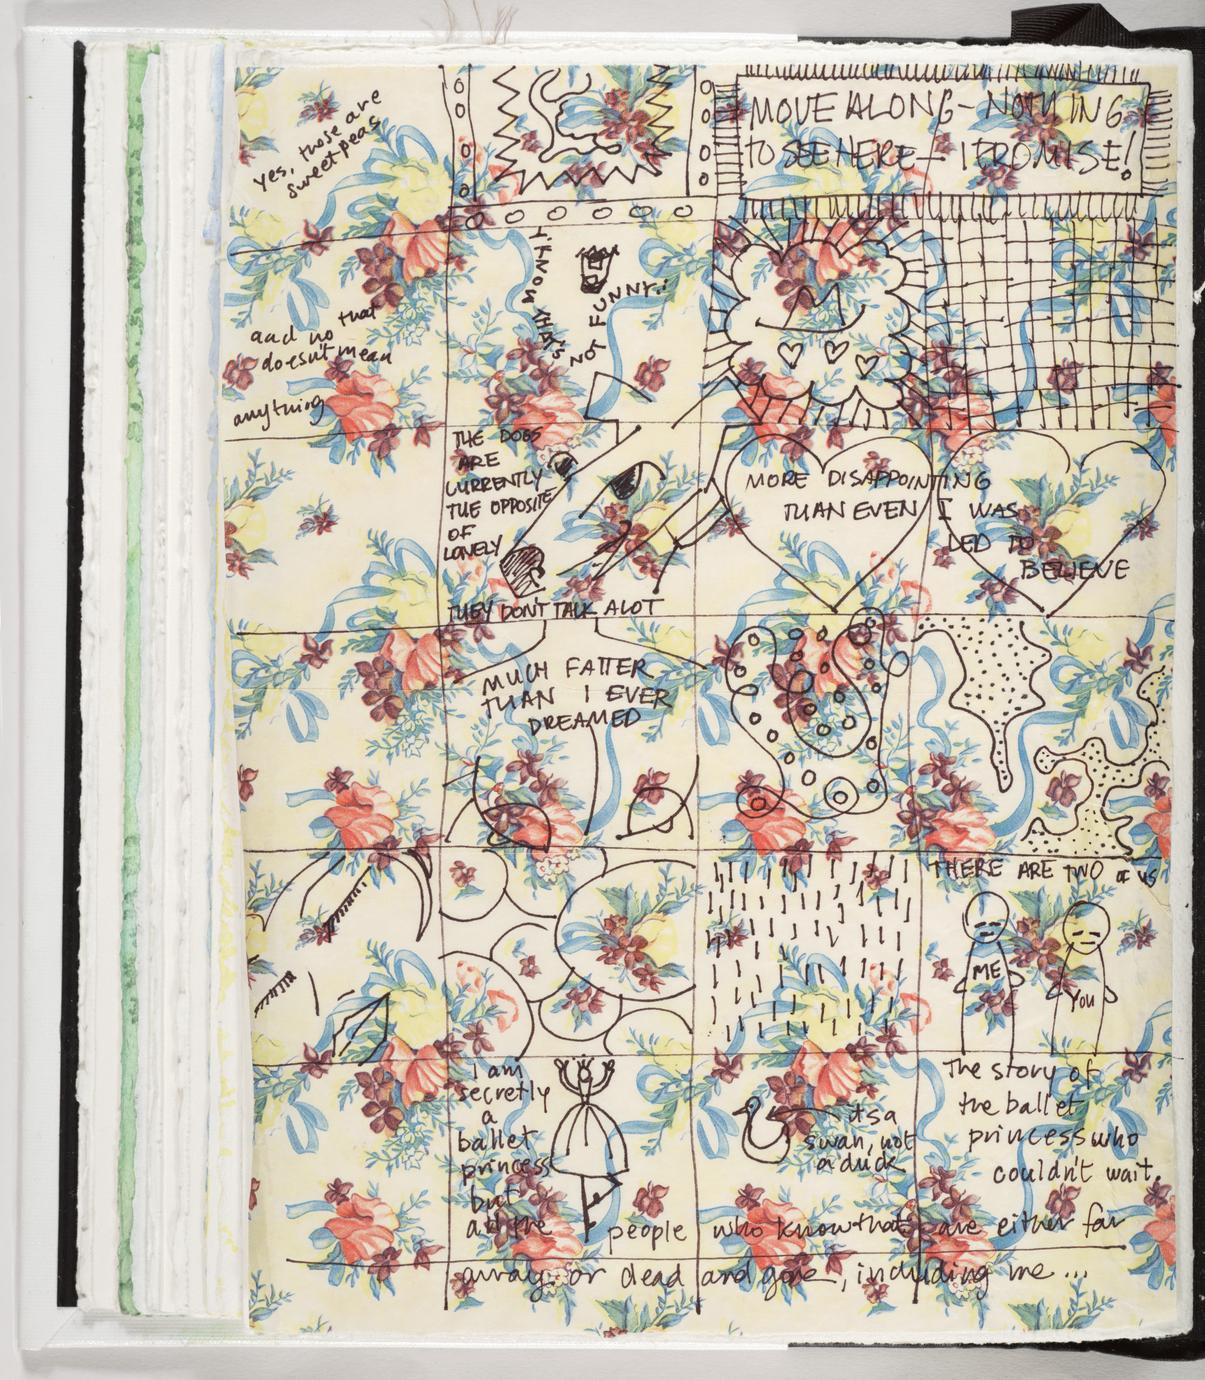 yes, those are
sweetpeas
MOVE ALONG- NOTHING
TO SEE HERE- I PROMISE!
I KNOW THAT'S NOT FUNNY.
and no that
doesn't mean
anything
THE DOGS
ARE
CURRENTLY
THE OPPOSITE
OF
LONELY
THEY DON'T TALK ALOT
MORE DISAPPOINTING
THAN EVEN I WAS
LED TO
BELIEVE
MUCH FATTER
THAN I EVER
DREAMED
THERE ARE TWO OF US
ME
YOU
i am
secretly
a
ballet
princess
but
all the people who know that are either far
away or dead and gone, including me...
its a
swan, not
a duck
The story of
the ballet
princess who
couldn't wait.